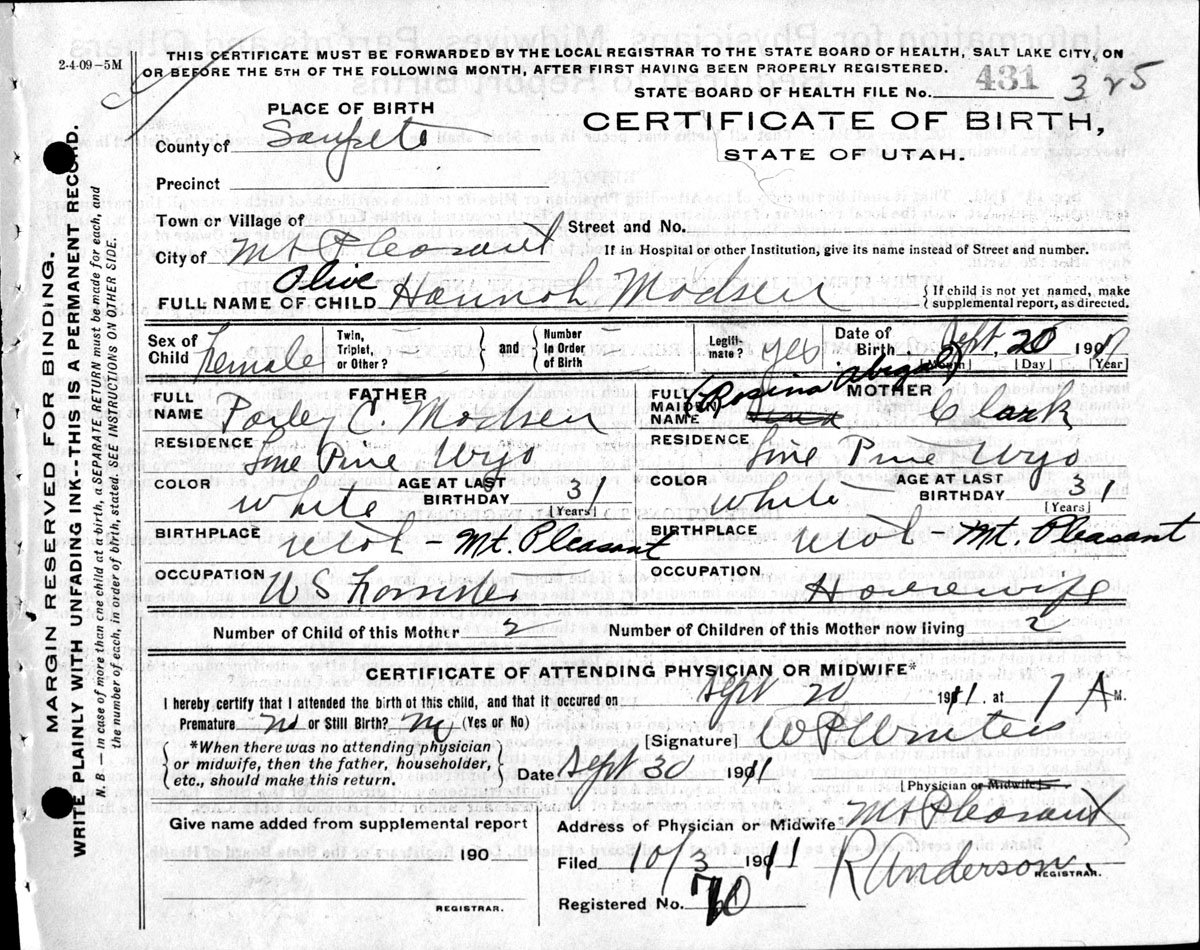 2-4-09-5M
THIS CERTIFICATE MUST BE FORWARDED BY THE LOCAL REGISTRAR TO THE STATE BOARD OF HEALTH, SALT LAKE CITY, ON
OR BEFORE THE 5TH OF THE FOLLOWING MONTH, AFTER FIRST HAVING BEEN PROPERLY REGISTERED.
STATE BOARD OF HEALTH FILE No. 431 325
PLACE OF BIRTH
CERTIFICATE OF BIRTH,
STATE OF UTAH.
County of Sanpete
Precinct
Town or Village of
Street and No.
City of Mt Pleasant
If in Hospital or other Institution, give its name instead of Street and number.
Olive
FULL NAME OF CHILD Hannah Madsen
{ If child is not yet named, make supplemental report, as directed.
Sex of Child Female
Twin, Triplet, or Other?
and
Number in Order of Birth
Legiti-mate? yes
Date of Birth Sept. 20 191
[Month] [Day] [Year]
FATHER
FULL NAME C. Madsen
MOTHER
FULL MAIDEN NAME (Rosina Abigal) Clark
RESIDENCE Pine Wyo
RESIDENCE Pine Wyo
COLOR White AGE AT LAST BIRTHDAY 31 [Years]
COLOR White AGE AT LAST BIRTHDAY 31 [Years]
BIRTHPLACE Utah - Mt. Pleasant
BIRTHPLACE Utah Mt. Pleasant
OCCUPATION U S Forrester
OCCUPATION Housewife
Number of Child of this Mother 2
Number of Children of this Mother now living 2
CERTIFICATE OF ATTENDING PHYSICIAN OR MIDWIFE*
I hereby certify that I attended the birth of this child, and that it occured on Sept 20 1911, at 7 A M.
Premature no or Still Birth? no (Yes or No)
[Signature] W P Winters
{ *When there was no attending physician or midwife, then the father, householder, etc., should make this return. }
Date Sept 30 1911
[Physician or Midwife]
Address of Physician or Midwife Mt Pleasant
Give name added from supplemental report
190
REGISTRAR.
Filed 10/3 1911 R Anderson.
REGISTRAR.
Registered No. 70
MARGIN RESERVED FOR BINDING.
WRITE PLAINLY WITH UNFADING INK--THIS IS A PERMANENT RECORD.
N. B.—In case of more than one child at a birth, a SEPARATE RETURN must be made for each, and
the number of each, in order of birth, stated. SEE INSTRUCTIONS ON OTHER SIDE.